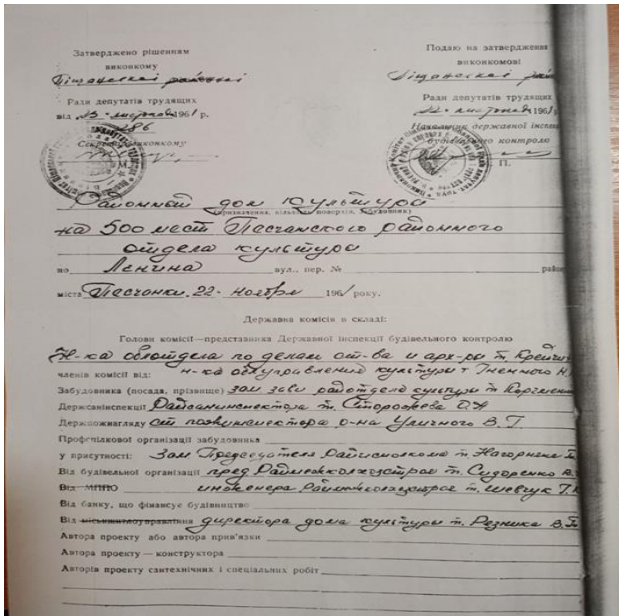 Затверджено рішенням
виконкому
Піщанської районної
Ради депутатів трудящих
від 23 листопада 1961 р.
286
Секретар виконкому
М.
Подаю на затвердження
виконкомові
Піщанської
Ради депутатів трудящих
22 листопада 1961
Начальник державної інспе
будівельного контролю
П.
Районный дом культуры
(призначення, кількість поверхів, забудовник)
на 500 мест Песчанского районного
отдела культуры
по Ленина вул., пер. № район
міста Песчанки. 22 - ноября 1961 року.
Державна комісія в складі:
Голови комісії—представника Державної інспекції будівельного контролю
Н-ка облотдела по делам ст-ва и арх-ры т.
членів комісії від: н-ка облуправления культуры т
Забудовника (посада, прізвище) зам. зав. райотдела культуры т.
Держсанінспекції Райсанинспектора т. Сторожева
Держпожнагляду ст пожинспектора р-на Уличного В. Г.
Профспілкової організації забудовника
у присутності: Зам Председателя Райисполкома т. Нагорнена
Від будівельної організації пред Райможколхозстроя т. Сидоренко
Від МППО инженера Райможколхозстроя т. Шевчук
Від банку, що фінансує будівництво
Від міськжитлоуправління директора дома культуры т. Резника В.
Автора проекту або автора прив'язки
Автора проекту — конструктора
Авторів проекту сантехнічних і спеціальних робіт